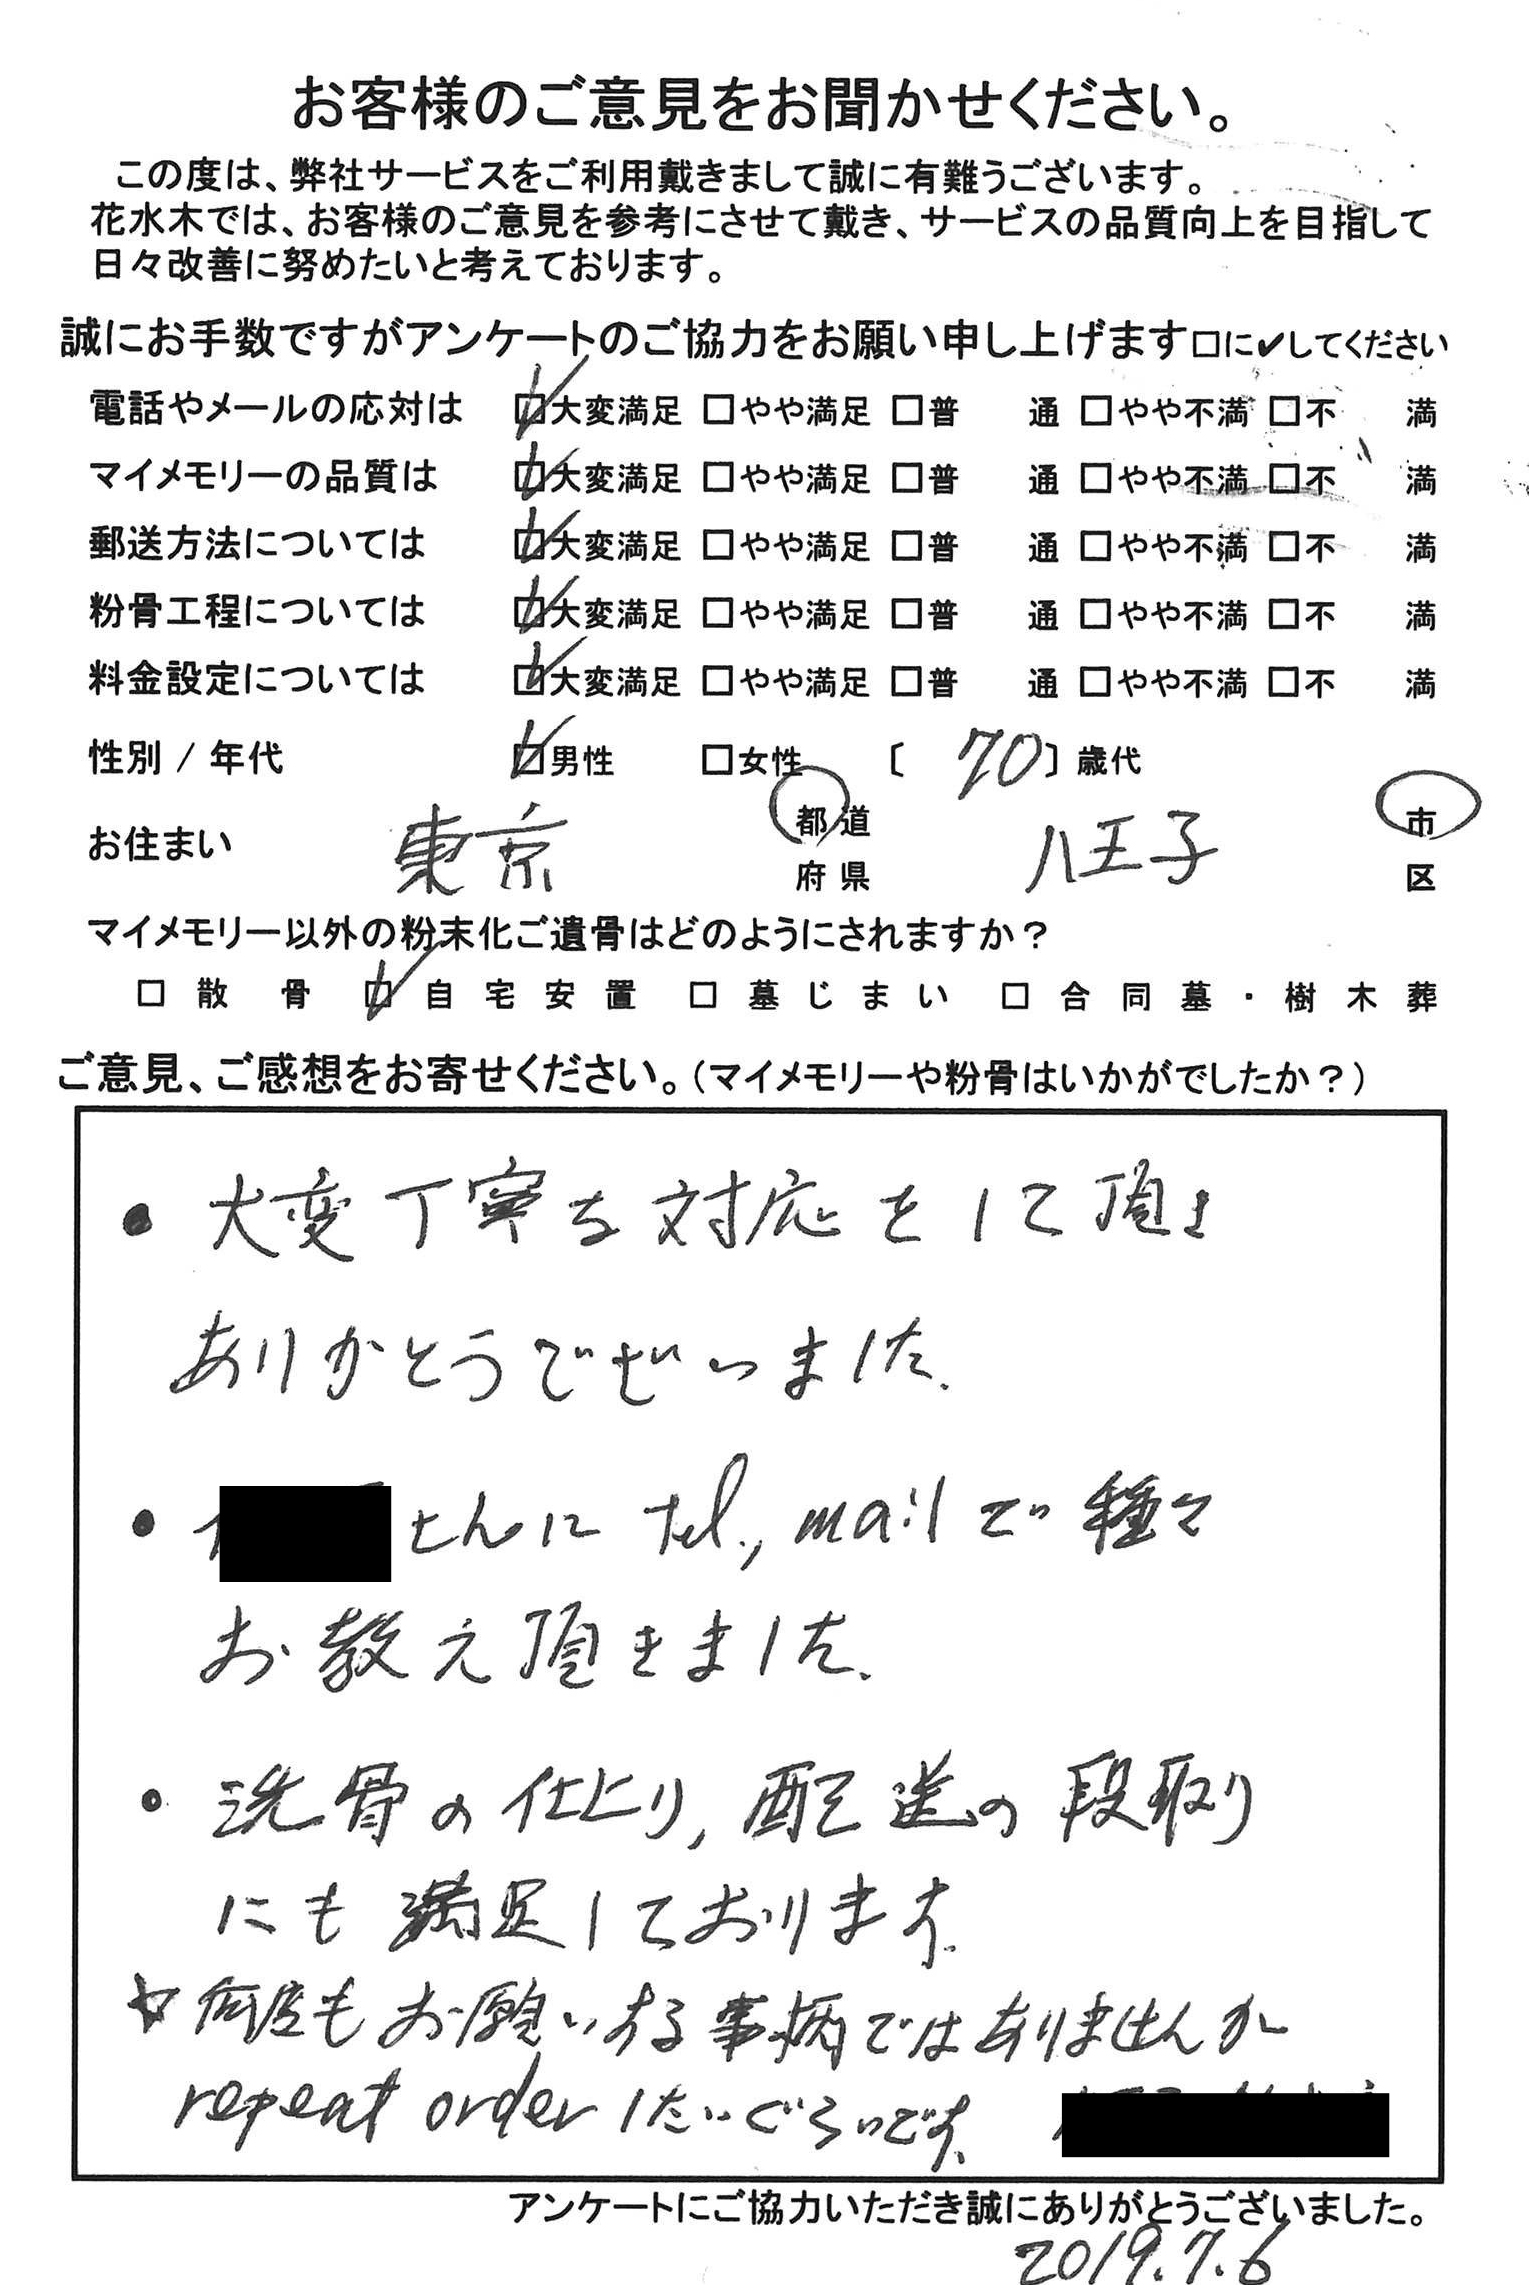 お客様のご意見をお聞かせください。
この度は、弊社サービスをご利用戴きまして誠に有難うございます。
花水木では、お客様のご意見を参考にさせて戴き、サービスの品質向上を目指して
日々改善に努めたいと考えております。
誠にお手数ですがアンケートのご協力をお願い申し上げます□に✔してください
電話やメールの応対は ☑大変満足 □やや満足 □普 通 □やや不満 □不 満
マイメモリーの品質は ☑大変満足 □やや満足 □普 通 □やや不満 □不 満
郵送方法については ☑大変満足 □やや満足 □普 通 □やや不満 □不 満
粉骨工程については ☑大変満足 □やや満足 □普 通 □やや不満 □不 満
料金設定については ☑大変満足 □やや満足 □普 通 □やや不満 □不 満
性別 / 年代 ☑男性 □女性 〔 70 〕歳代
お住まい 東京 都道府県 八王子 市区
マイメモリー以外の粉末化ご遺骨はどのようにされますか？
□ 散骨 ☑ 自宅安置 □ 墓じまい □ 合同墓・樹木葬
ご意見、ご感想をお寄せください。（マイメモリーや粉骨はいかがでしたか？）
● 大変丁寧な対応をして頂き
ありがとうございました.
● さんに tel., mailで種々
お教え頂きました.
● 洗骨の仕上り, 配送の段取り
にも満足しております.
☆何度もお願いする事柄ではありませんが
repeat orderしたいぐらいです.
アンケートにご協力いただき誠にありがとうございました。
2019.7.6